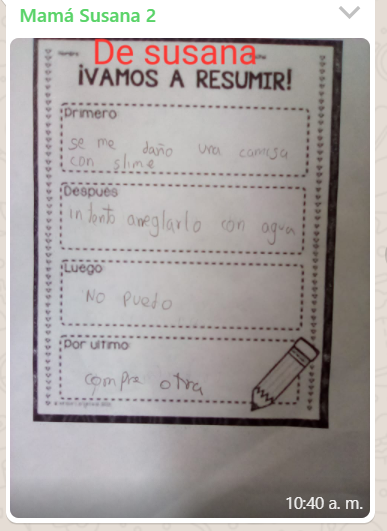 Mamá Susana 2
De susana
¡VAMOS A RESUMIR!
Primero
se me daño una camisa
con slime
Después
intento arreglarlo con agua
Luego
No puedo
Por ultimo
compra otra
10:40 a. m.